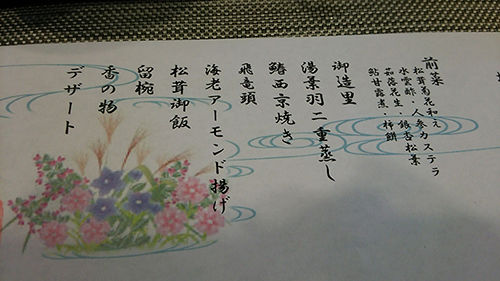 前菜
松茸菊花和え
水雲酢・人参カステラ
茹落花生・銀杏松葉
鮎甘露煮・柿餅
御造里
湯葉羽二重蒸し
鰆西京焼き
飛竜頭
海老アーモンド揚げ
松茸御飯
留椀
香の物
デザート